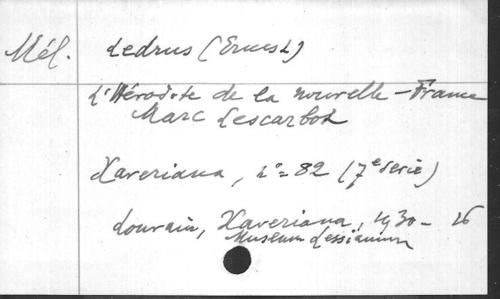 Mél. Ledrus (Ernest)
L'Hérodote de la nouvelle-France
Marc Lescarbot
Xaveriana, n° 82 (7e série)
Louvain, Xaveriana, 1930 - 16
Museum Lessianum